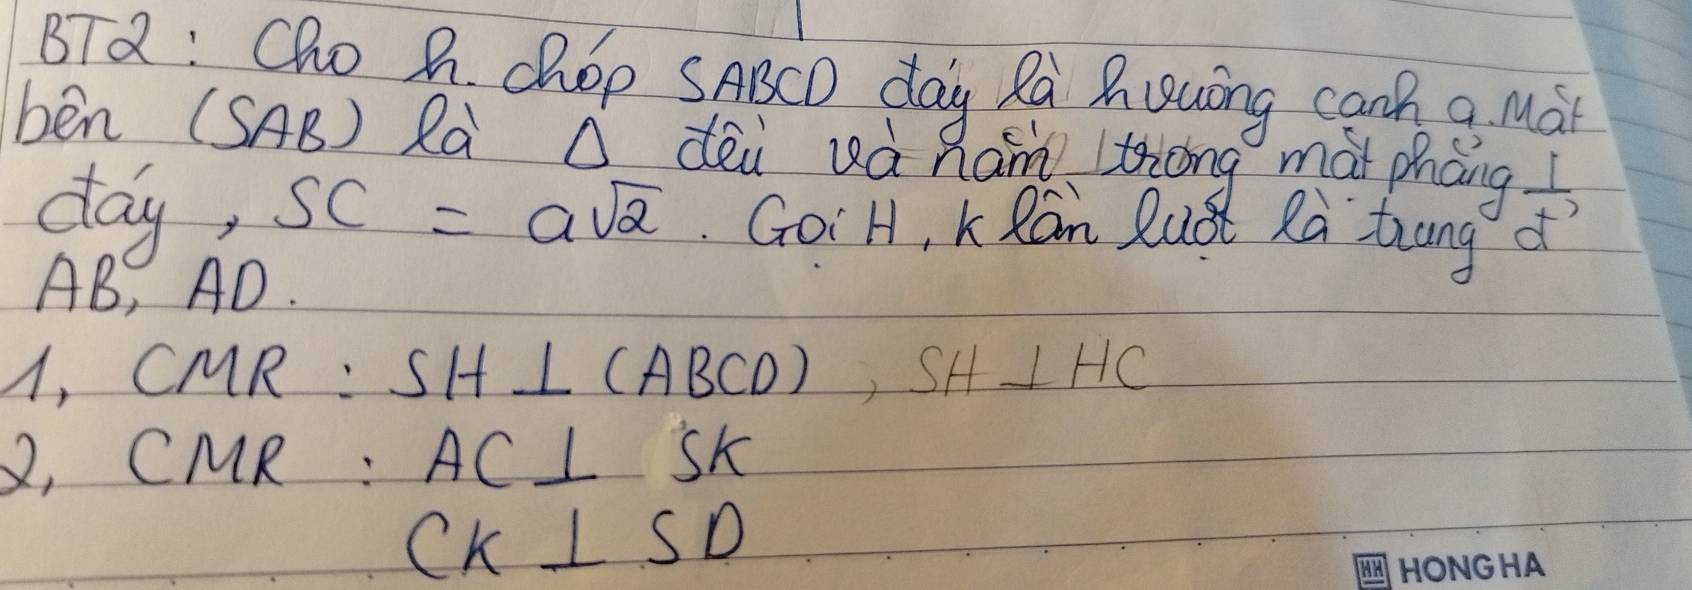 BT2: Cho h. chóp SABCD đáy là hvuông cạnh a. Mặt
bên (SAB) là Δ đều và nằm trong mặt phẳng ⊥
đáy, SC = a√2. Gọi H, K lần lượt là trung đ'
AB, AD.
1, CMR : SH ⊥ (ABCD), SH ⊥ HC
2, CMR : AC ⊥ SK
CK ⊥ SD
HH HONG HA